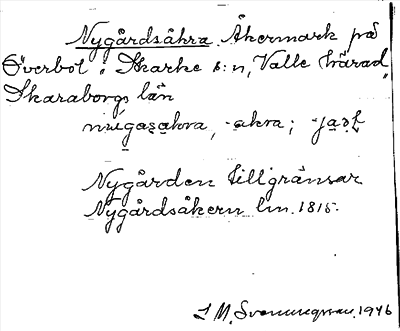 Nygårdsåkra. Åkermark på
Överbol i Skarke s:n, Valle härad,
Skaraborgs län
nugasakra, -akra;
Nygården tillgränsar
Nygårdsåkern lm. 1815.
S. M. Svenungsson. 1946